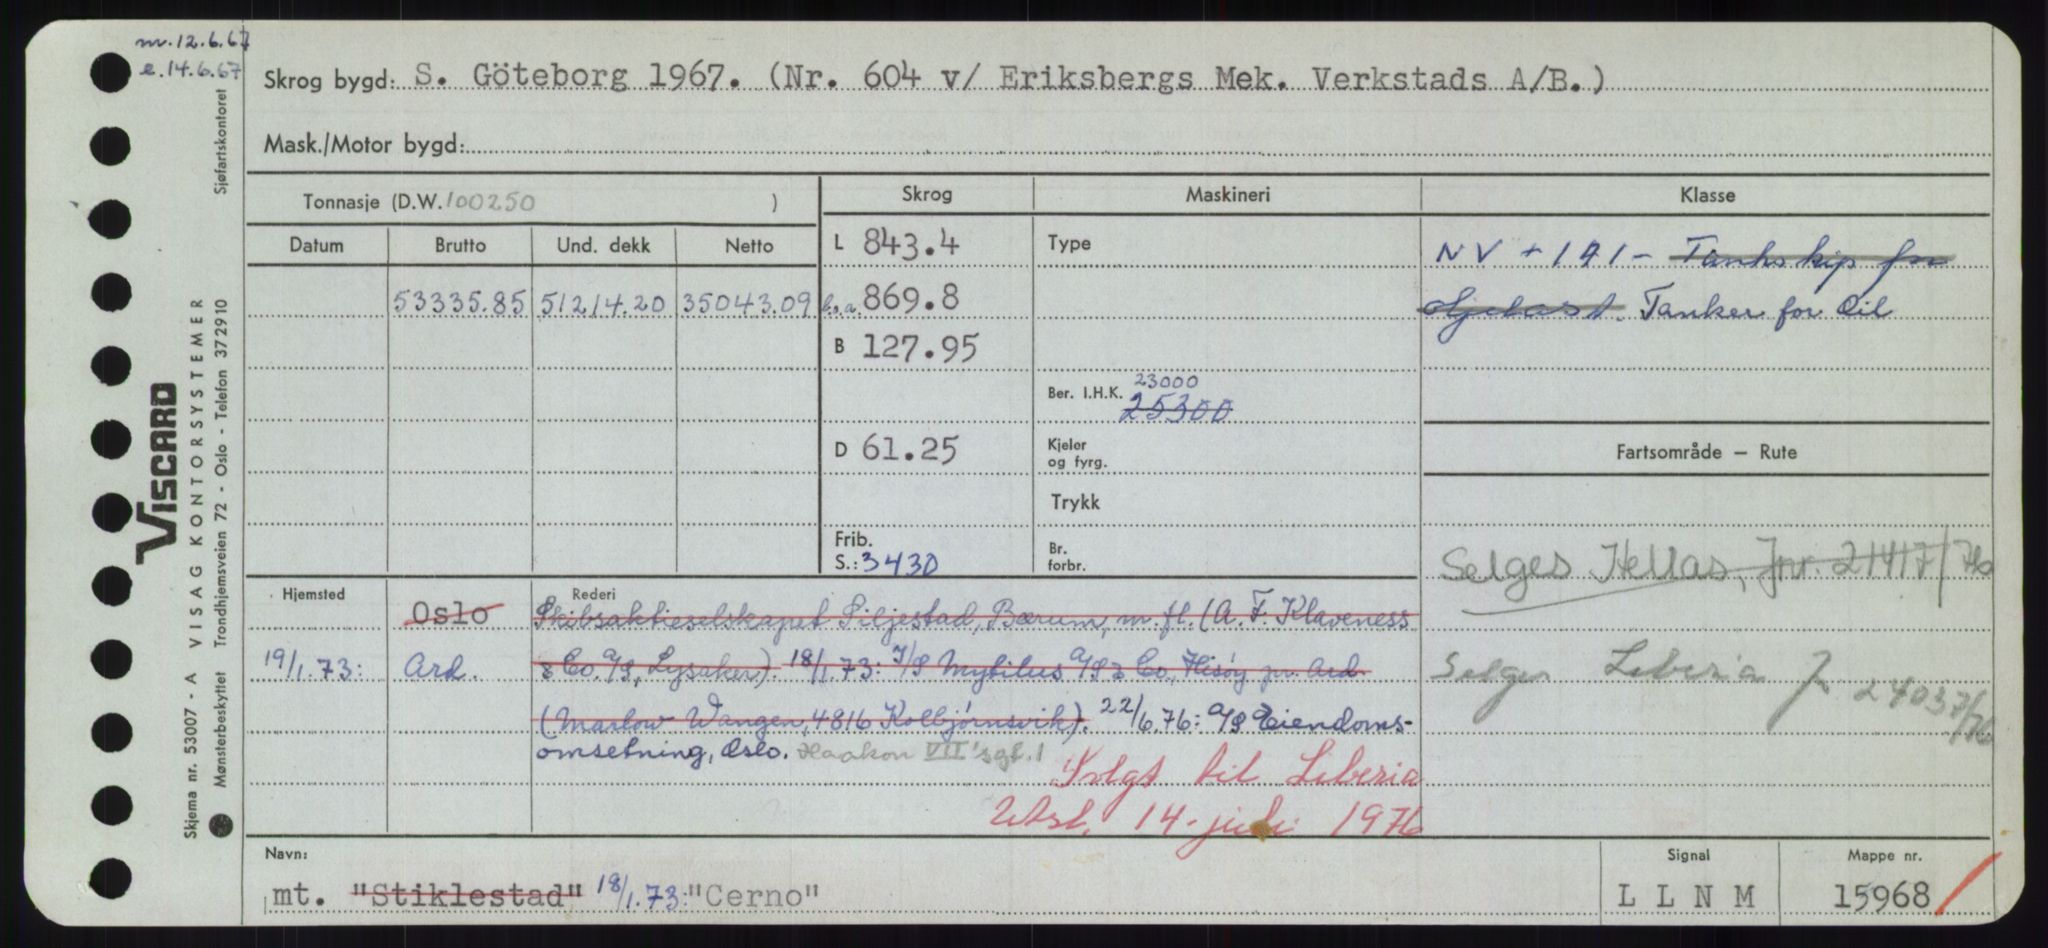 m. 12.6.67
e. 14.6.67
Skrog bygd: S. Göteborg 1967. (Nr. 604 v/ Eriksbergs Mek. Verkstads A/B.)
Mask./Motor bygd:
Tonnasje (D.W. 100250 )
Skrog
Maskineri
Klasse
Datum Brutto Und. dekk Netto
53335.85 51214.20 35043.09
L 843.4
l.o.a. 869.8
B 127.95
D 61.25
Frib.
S.: 3430
Type
Ber. I.H.K. 23000
25300
Kjeler
og fyrg.
Trykk
Br.
forbr.
NV + 1A1 - Tankskip for
Oljelast. Tanker for Oil
Fartsområde — Rute
Selges Hellas, Jnr. 21417/76
Selges Liberia J 24037/76
Hjemsted
Rederi
Oslo Skibsaktieselskapet Siljestad, Bærum, m. fl. (A. F. Klaveness
19/1.73: Ard. & Co. A/S, Lysaker). 18/1.73: I/S Mytilus A/S & Co., Hisöy pr. Ard
(Marlow Wangen, 4816 Kolbjörnsvik). 22/6.76: A/S Eiendoms-
omsetning, Oslo. Haakon VII's gt. 1
Solgt til Liberia
Utsl. 14. juli 1976
Navn:
mt. "Stiklestad" 18/1.73: "Cerno"
Signal
L L N M
Mappe nr.
15968
Skjema nr. 53007 - A VISAG KONTORSYSTEMER
VISCARD
Mønsterbeskyttet Trondhjemsveien 72 - Oslo - Telefon 372910
Sjøfartskontoret